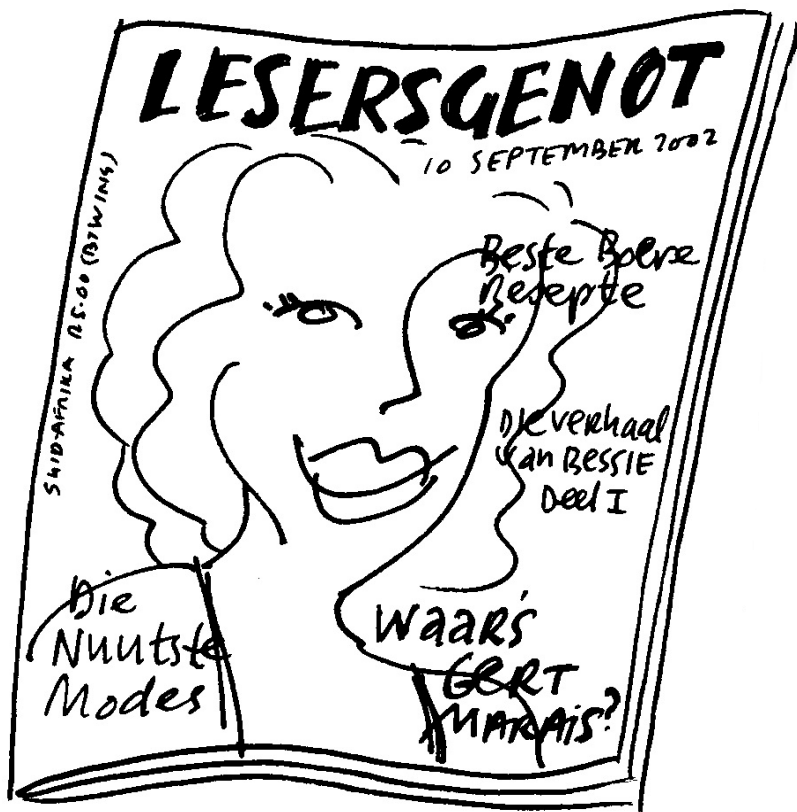 LESERSGENOT
10 SEPTEMBER 2002
SUID-AFRIKA R5.00 (BTW ING)
Beste Boere
Resepte
Die verhaal
van BESSIE
Deel I
Die
Nuutste
Modes
Waar's
GERT
MARAIS?